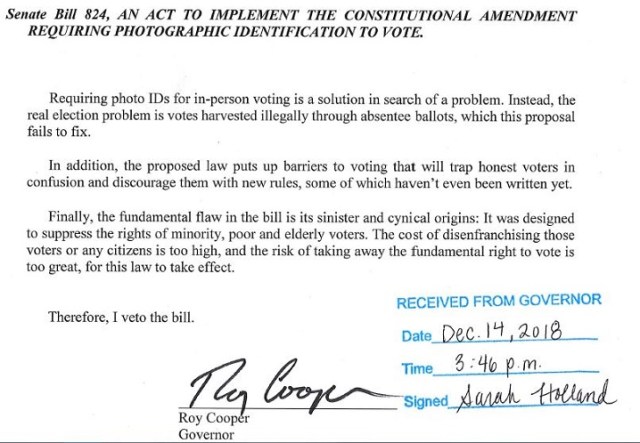 Senate Bill 824, AN ACT TO IMPLEMENT THE CONSTITUTIONAL AMENDMENT
REQUIRING PHOTOGRAPHIC IDENTIFICATION TO VOTE.
Requiring photo IDs for in-person voting is a solution in search of a problem. Instead, the
real election problem is votes harvested illegally through absentee ballots, which this proposal
fails to fix.
In addition, the proposed law puts up barriers to voting that will trap honest voters in
confusion and discourage them with new rules, some of which haven't even been written yet.
Finally, the fundamental flaw in the bill is its sinister and cynical origins: It was designed
to suppress the rights of minority, poor and elderly voters. The cost of disenfranchising those
voters or any citizens is too high, and the risk of taking away the fundamental right to vote is
too great, for this law to take effect.
Therefore, I veto the bill.
RECEIVED FROM GOVERNOR
Date Dec. 14, 2018
Time 3:46 p.m.
Signed Sarah Holland
Roy Cooper
Roy Cooper
Governor